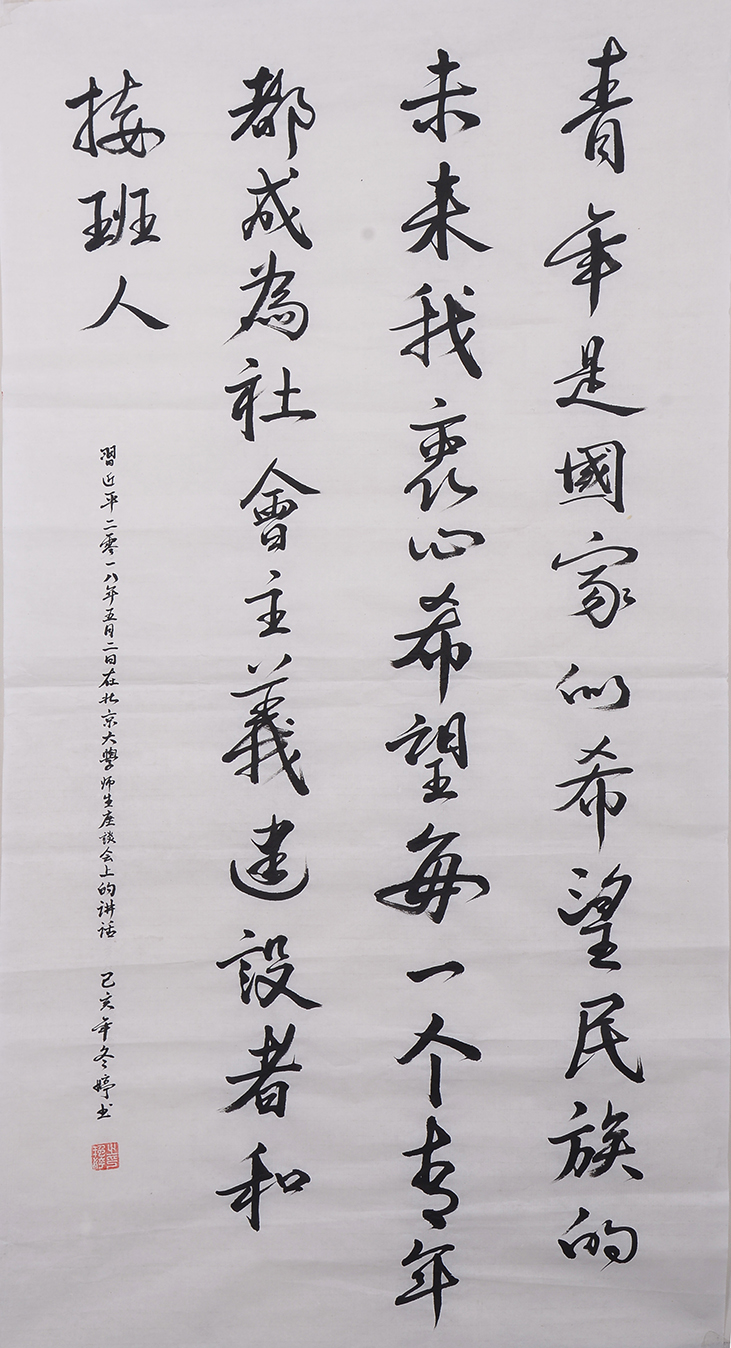 青年是國家的希望民族的
未来我衷心希望每一个青年
都成為社會主義建設者和
接班人
習近平二零一八年五月二日在北京大學师生座谈会上的讲话 己亥年冬婷书